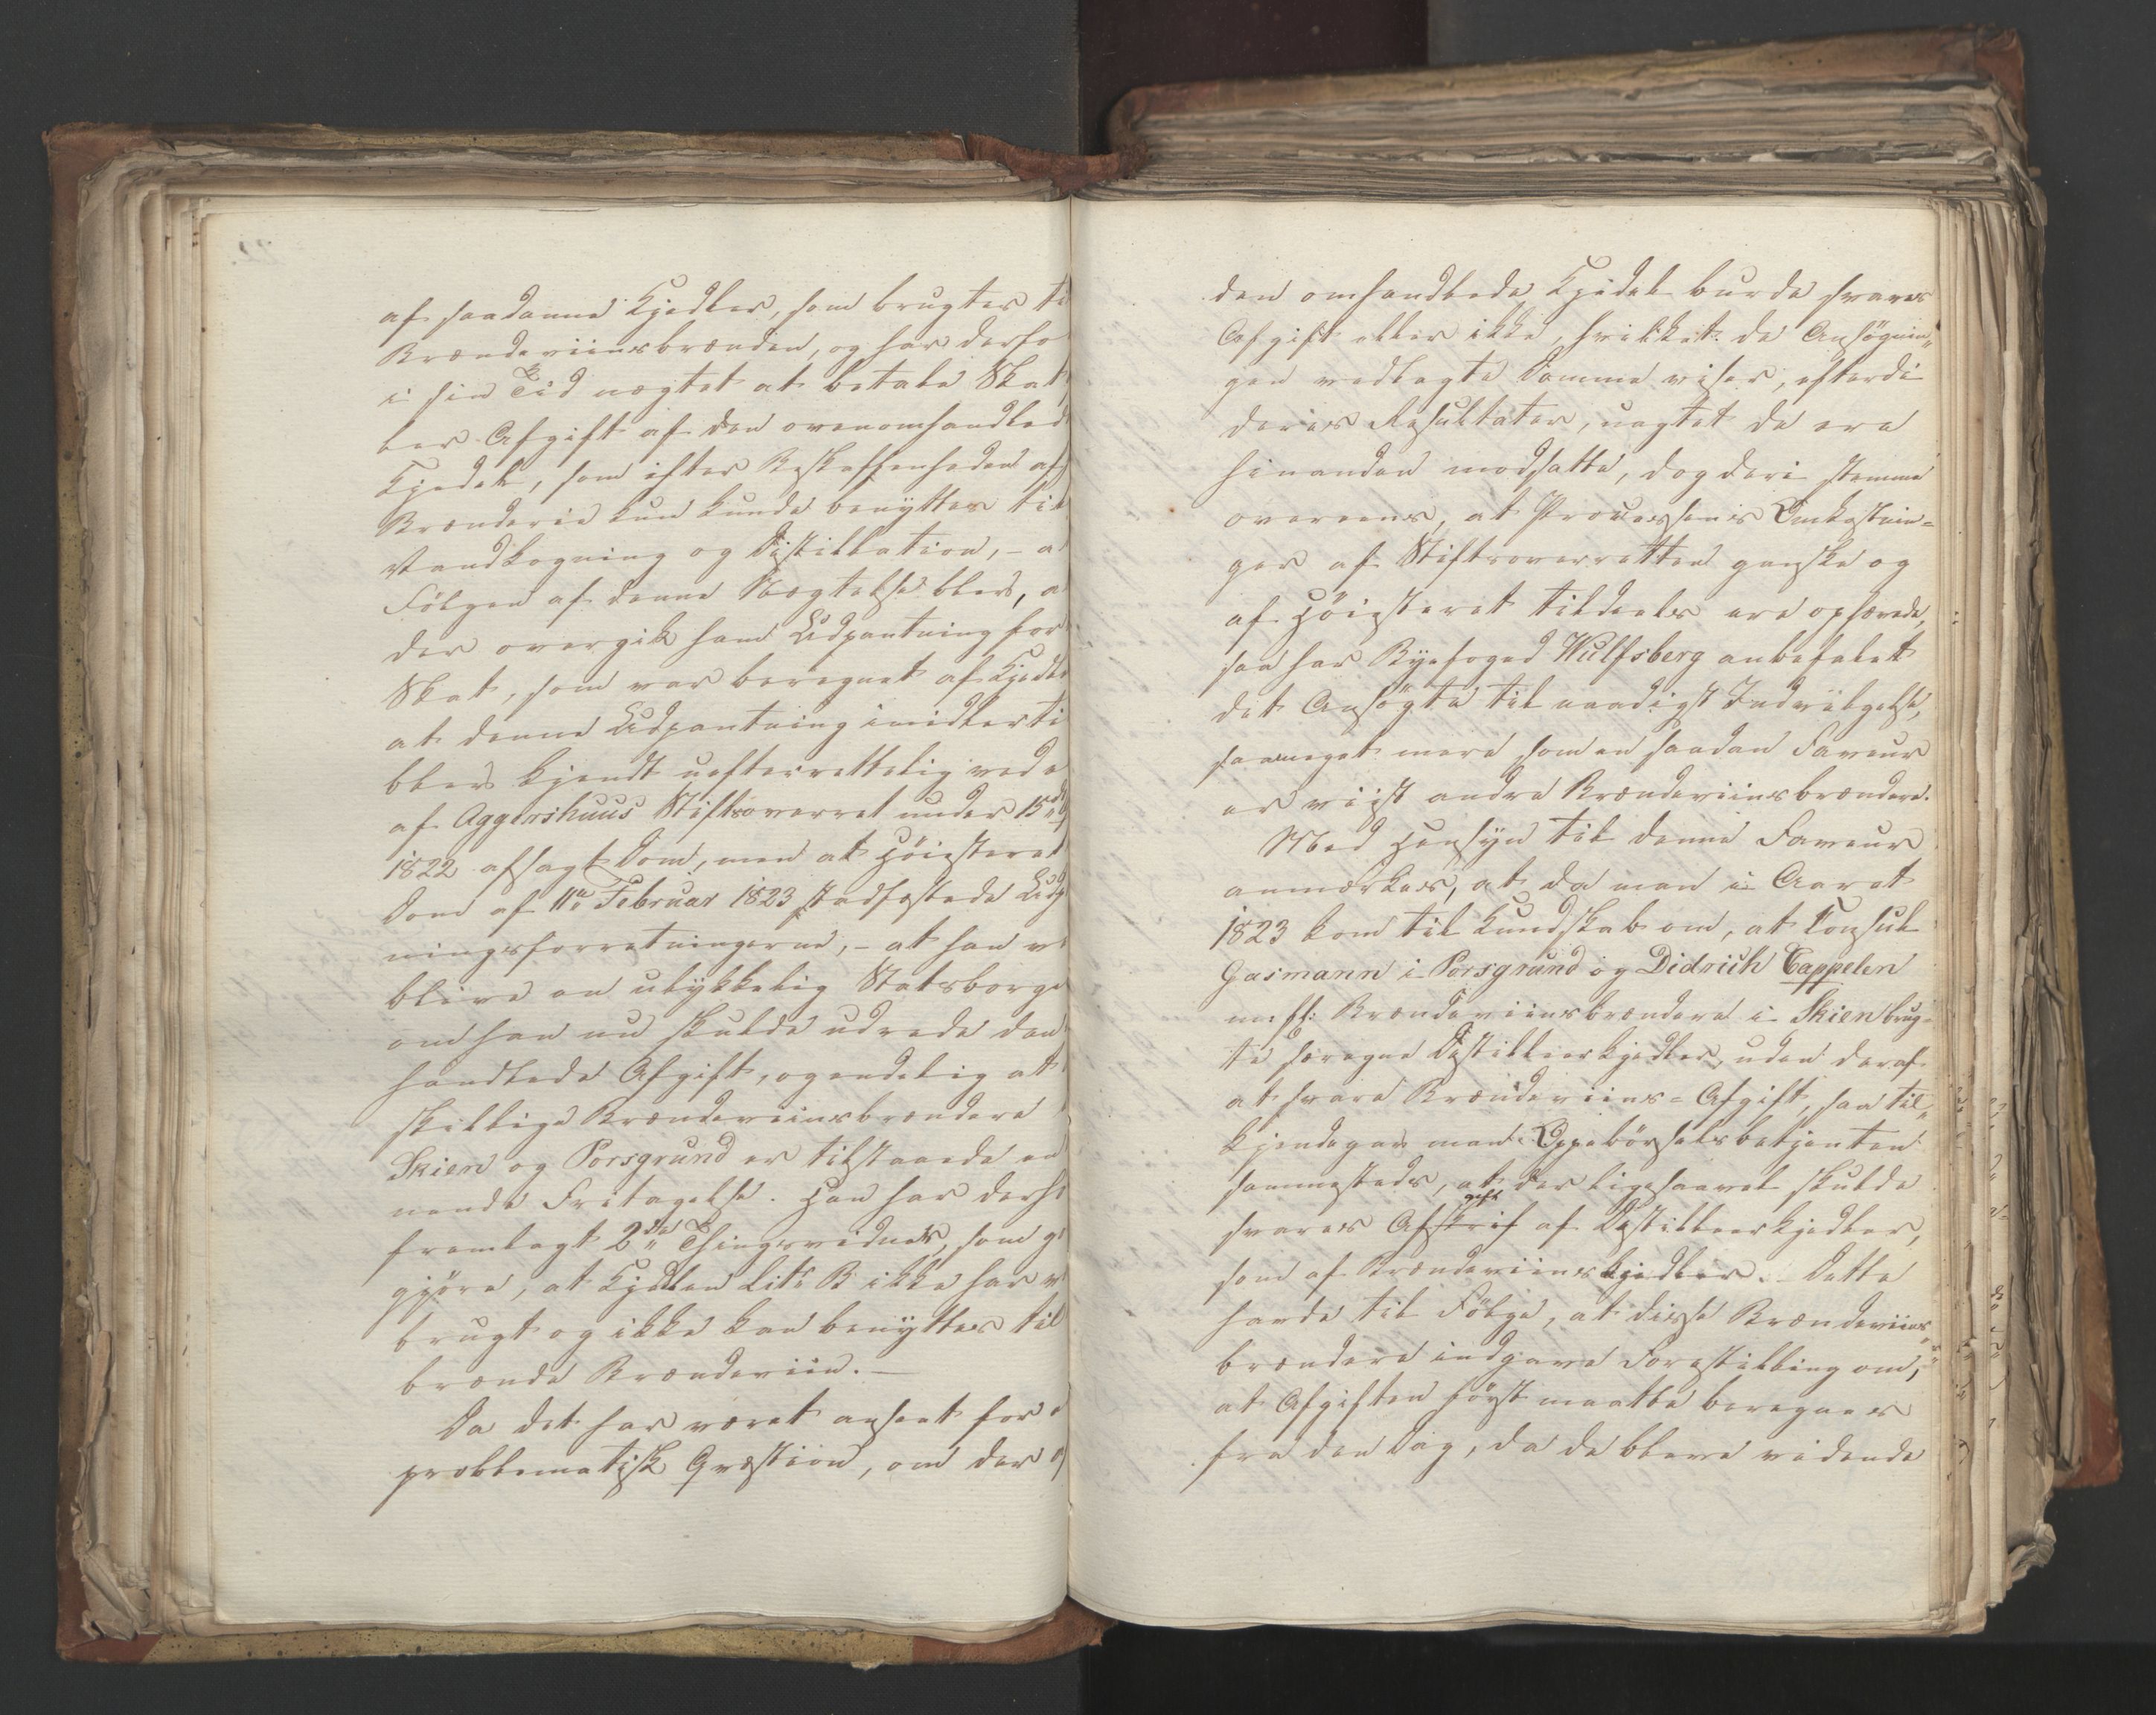 af saadanne Kjedler, som brugtes ti
Brændeviinsbrænden, og har derfo
i sin Tid nægtet at betale Skat
ler Afgift af den ovenomhandled
Kjedel, som efter Beskaffenheden af
Brænderie kun kunde benyttes til
Vandkogning og Distillation, - a
Følgen af denne Nægtelse blev, a
der overgik ham Udpantning for
Skat, som var beregnet af Kjedle
at denne Udpantning imidlerti
blev kjendt uefterrettelig ved e
af Aggershuus Stiftsoverret under 15de
1822 afsagt Dom, men at Høiesteret
Dom af 11te Februar 1823 stadfæstede Udp
ningsforretningerne, - at han v
blive en ulykkelig Statsborge
om han nu skulde udrede den
handlede Afgift, og endelig at
skillige Brændeviinsbrændere
Skien og Porsgrund er tilstaaede en
nende Fritagelse. Han har derh
fremlagt 2de Thingsvidner, som g
gjøre, at Kjedlen Litr B ikke har v
brugt og ikke kan benyttes til
brænde Brændeviin. —
Da det har været anseet for e
problematisk Qvæstion, om der a
den omhandlede Kjedel burde svares
Afgift eller ikke, hvilket de Ansøgnin„
gen vedlagte Domme viser, efterdi
deres Resultater, uagtet de ere
hinanden modsatte, dog deri stemme
overeens, at Processens Omkostnin=
ger af Stiftsoverretten ganske og
af Høiesteret tildeels ere ophævede,
saa har Byefoged Wulfsberg anbefalet
det Ansøgte til naadigst Indvilgelse,
saameget mere som en saadan Faveur
er viist andre Brændeviinsbrændere.
Med Hensyn til denne Faveur
anmærkes, at da man i Aaret
1823 kom til Kundskab om, at Konsul
Gasmann i Porsgrund og Didrich Cappelen
m: fl: Brændeviinsbrændere i Skien brug-
te særegne Distilleerkjedler, uden deraf
at svare Brændeviins=Afgift, saa til„
kjendegav man Oppebørselsbetjenten
sammesteds, at der ligesaavel skulde
gift
svares Afskrif af Distilleerkjedler,
som af Brændeviinskjedler. Dette
havde til Følge, at disse Brændeviins„
brændere indgave Forestilling om,
at Afgiften først maatte beregnes
fra den Dag, da de bleve vidende